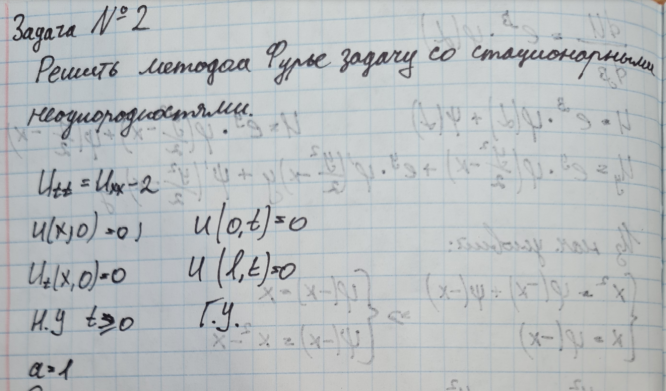 Задача №2
Решить методом Фурье задачу со стационарными
неоднородностями.
U_tt = U_xx - 2
U(x,0) = 0; U(0,t) = 0
U_t(x,0) = 0 U(l,t) = 0
Н.У t ≥ 0 Г.У.
a = 1